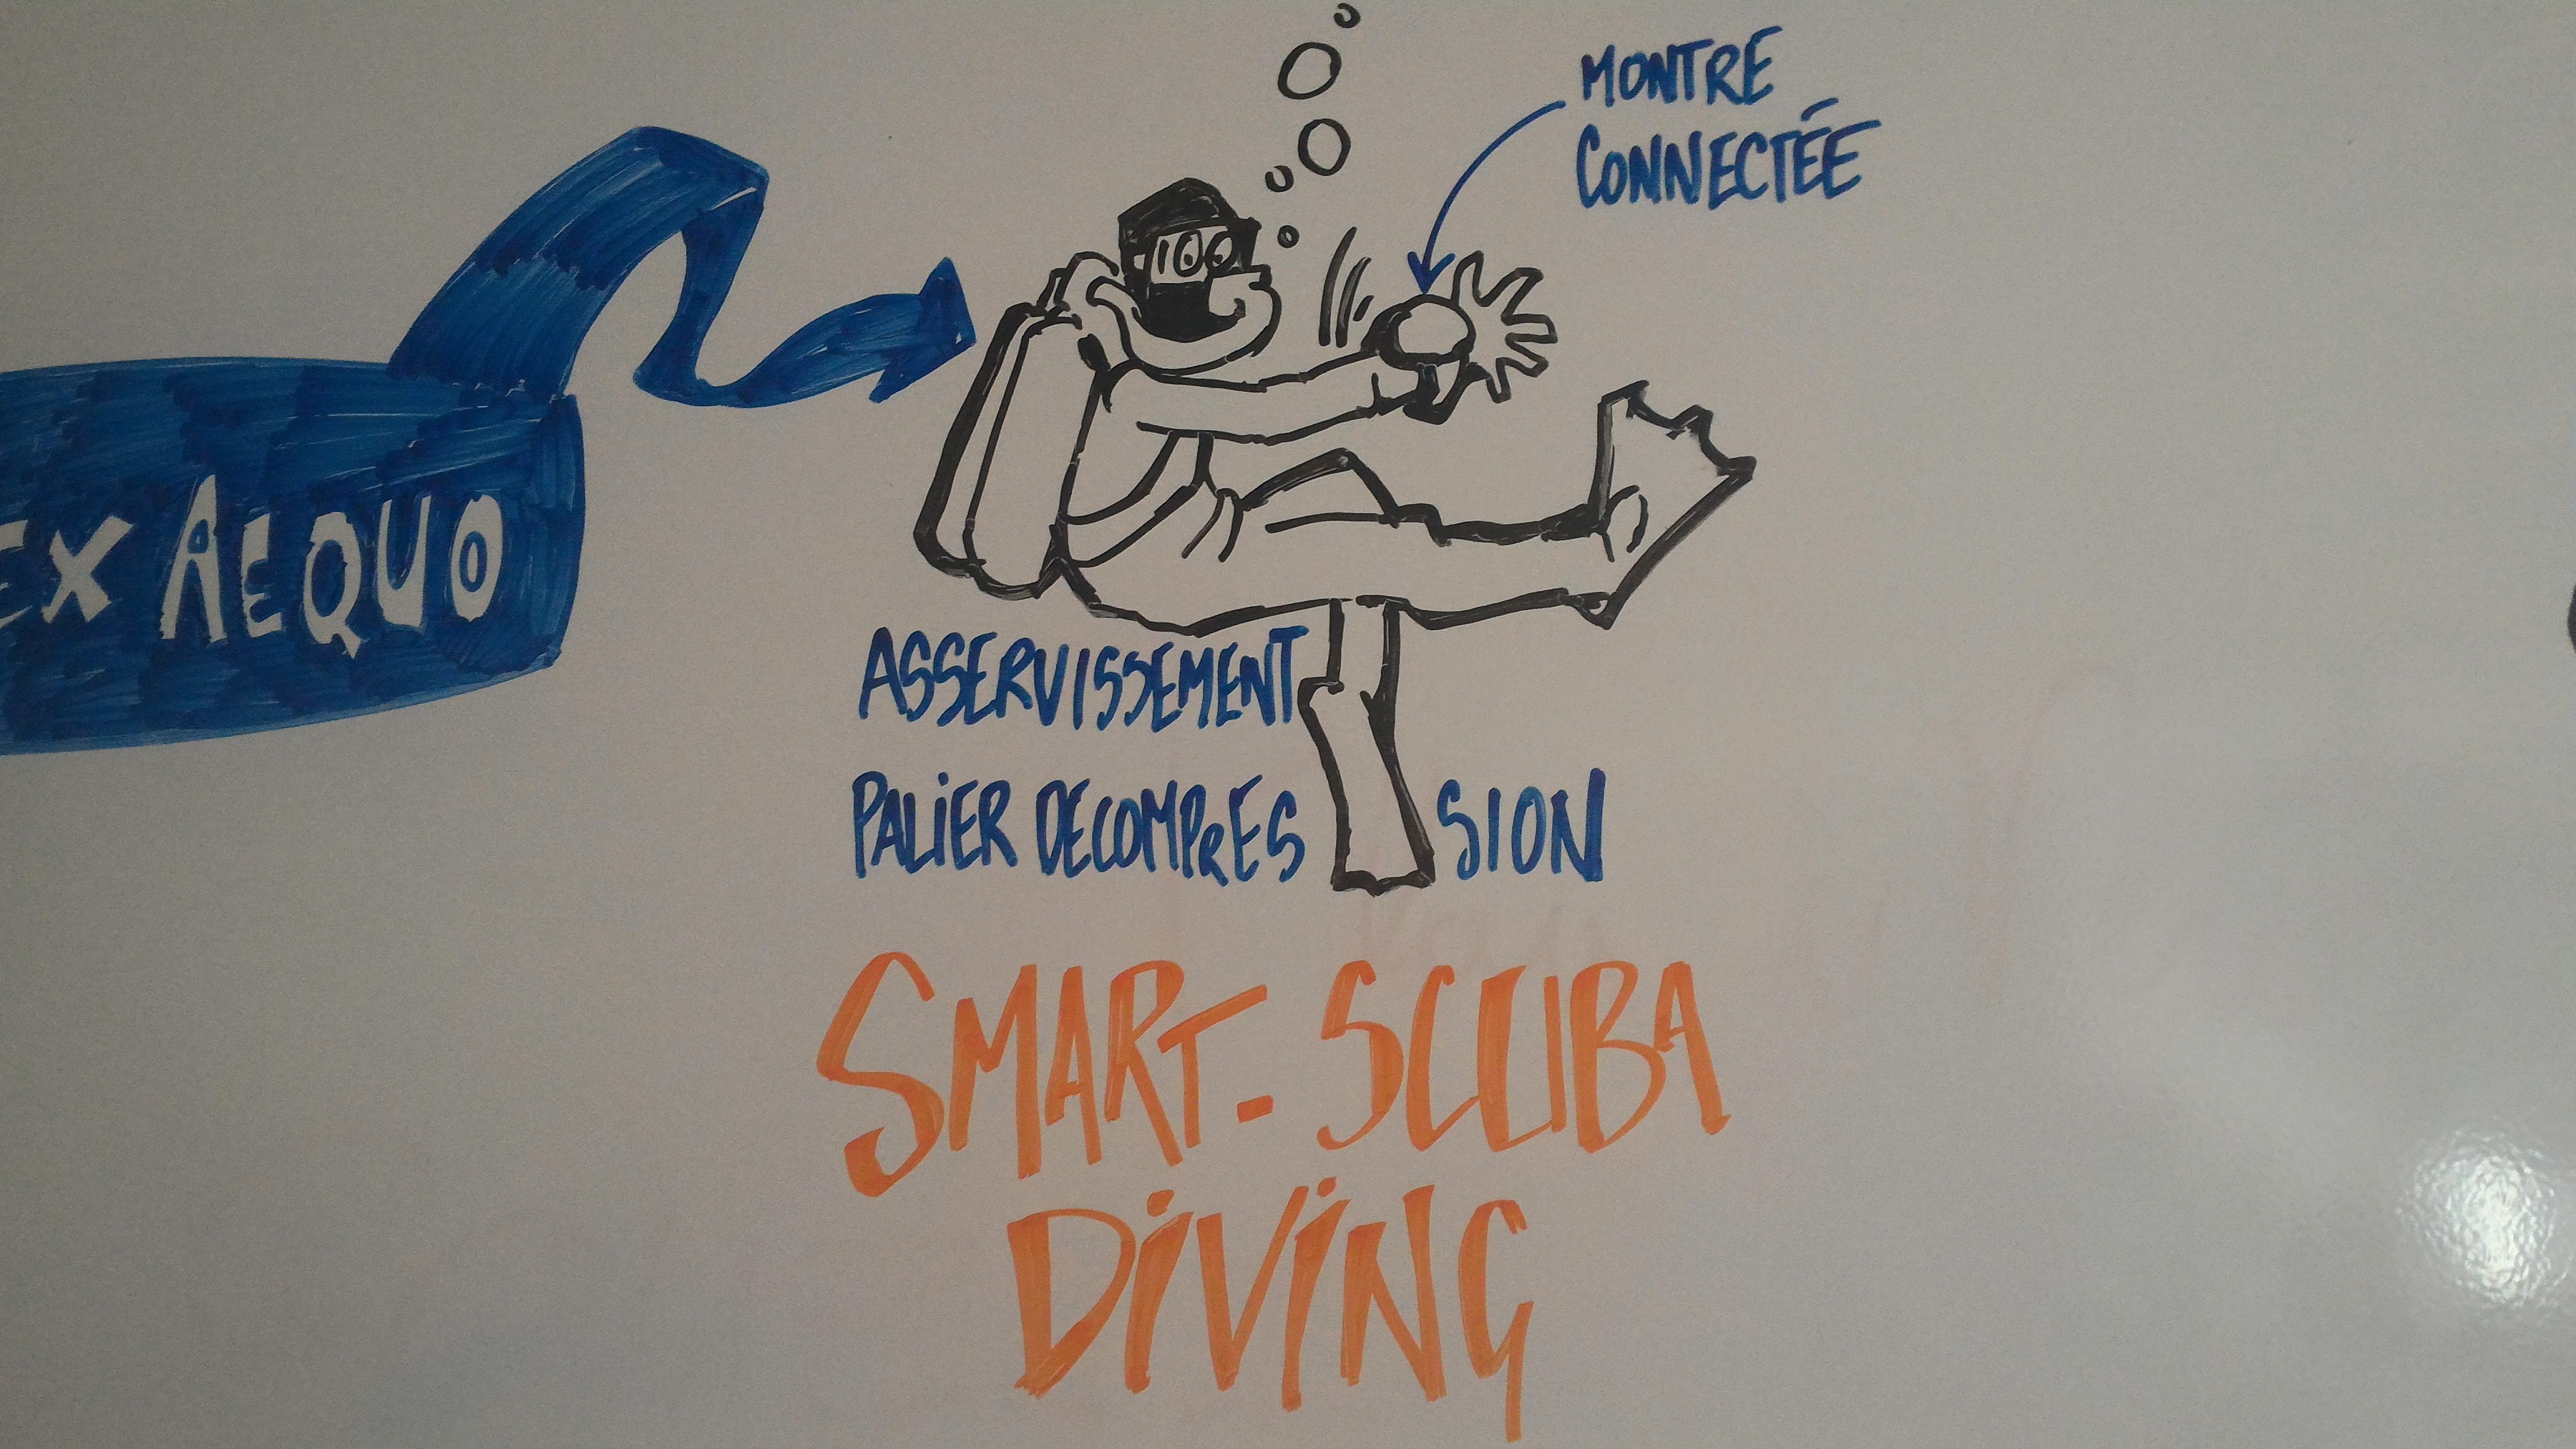 MONTRE
CONNECTÉE
EX AEQUO
ASSERVISSEMENT
PALIER DECOMPRESSION
SMART-SCUBA
DIVING